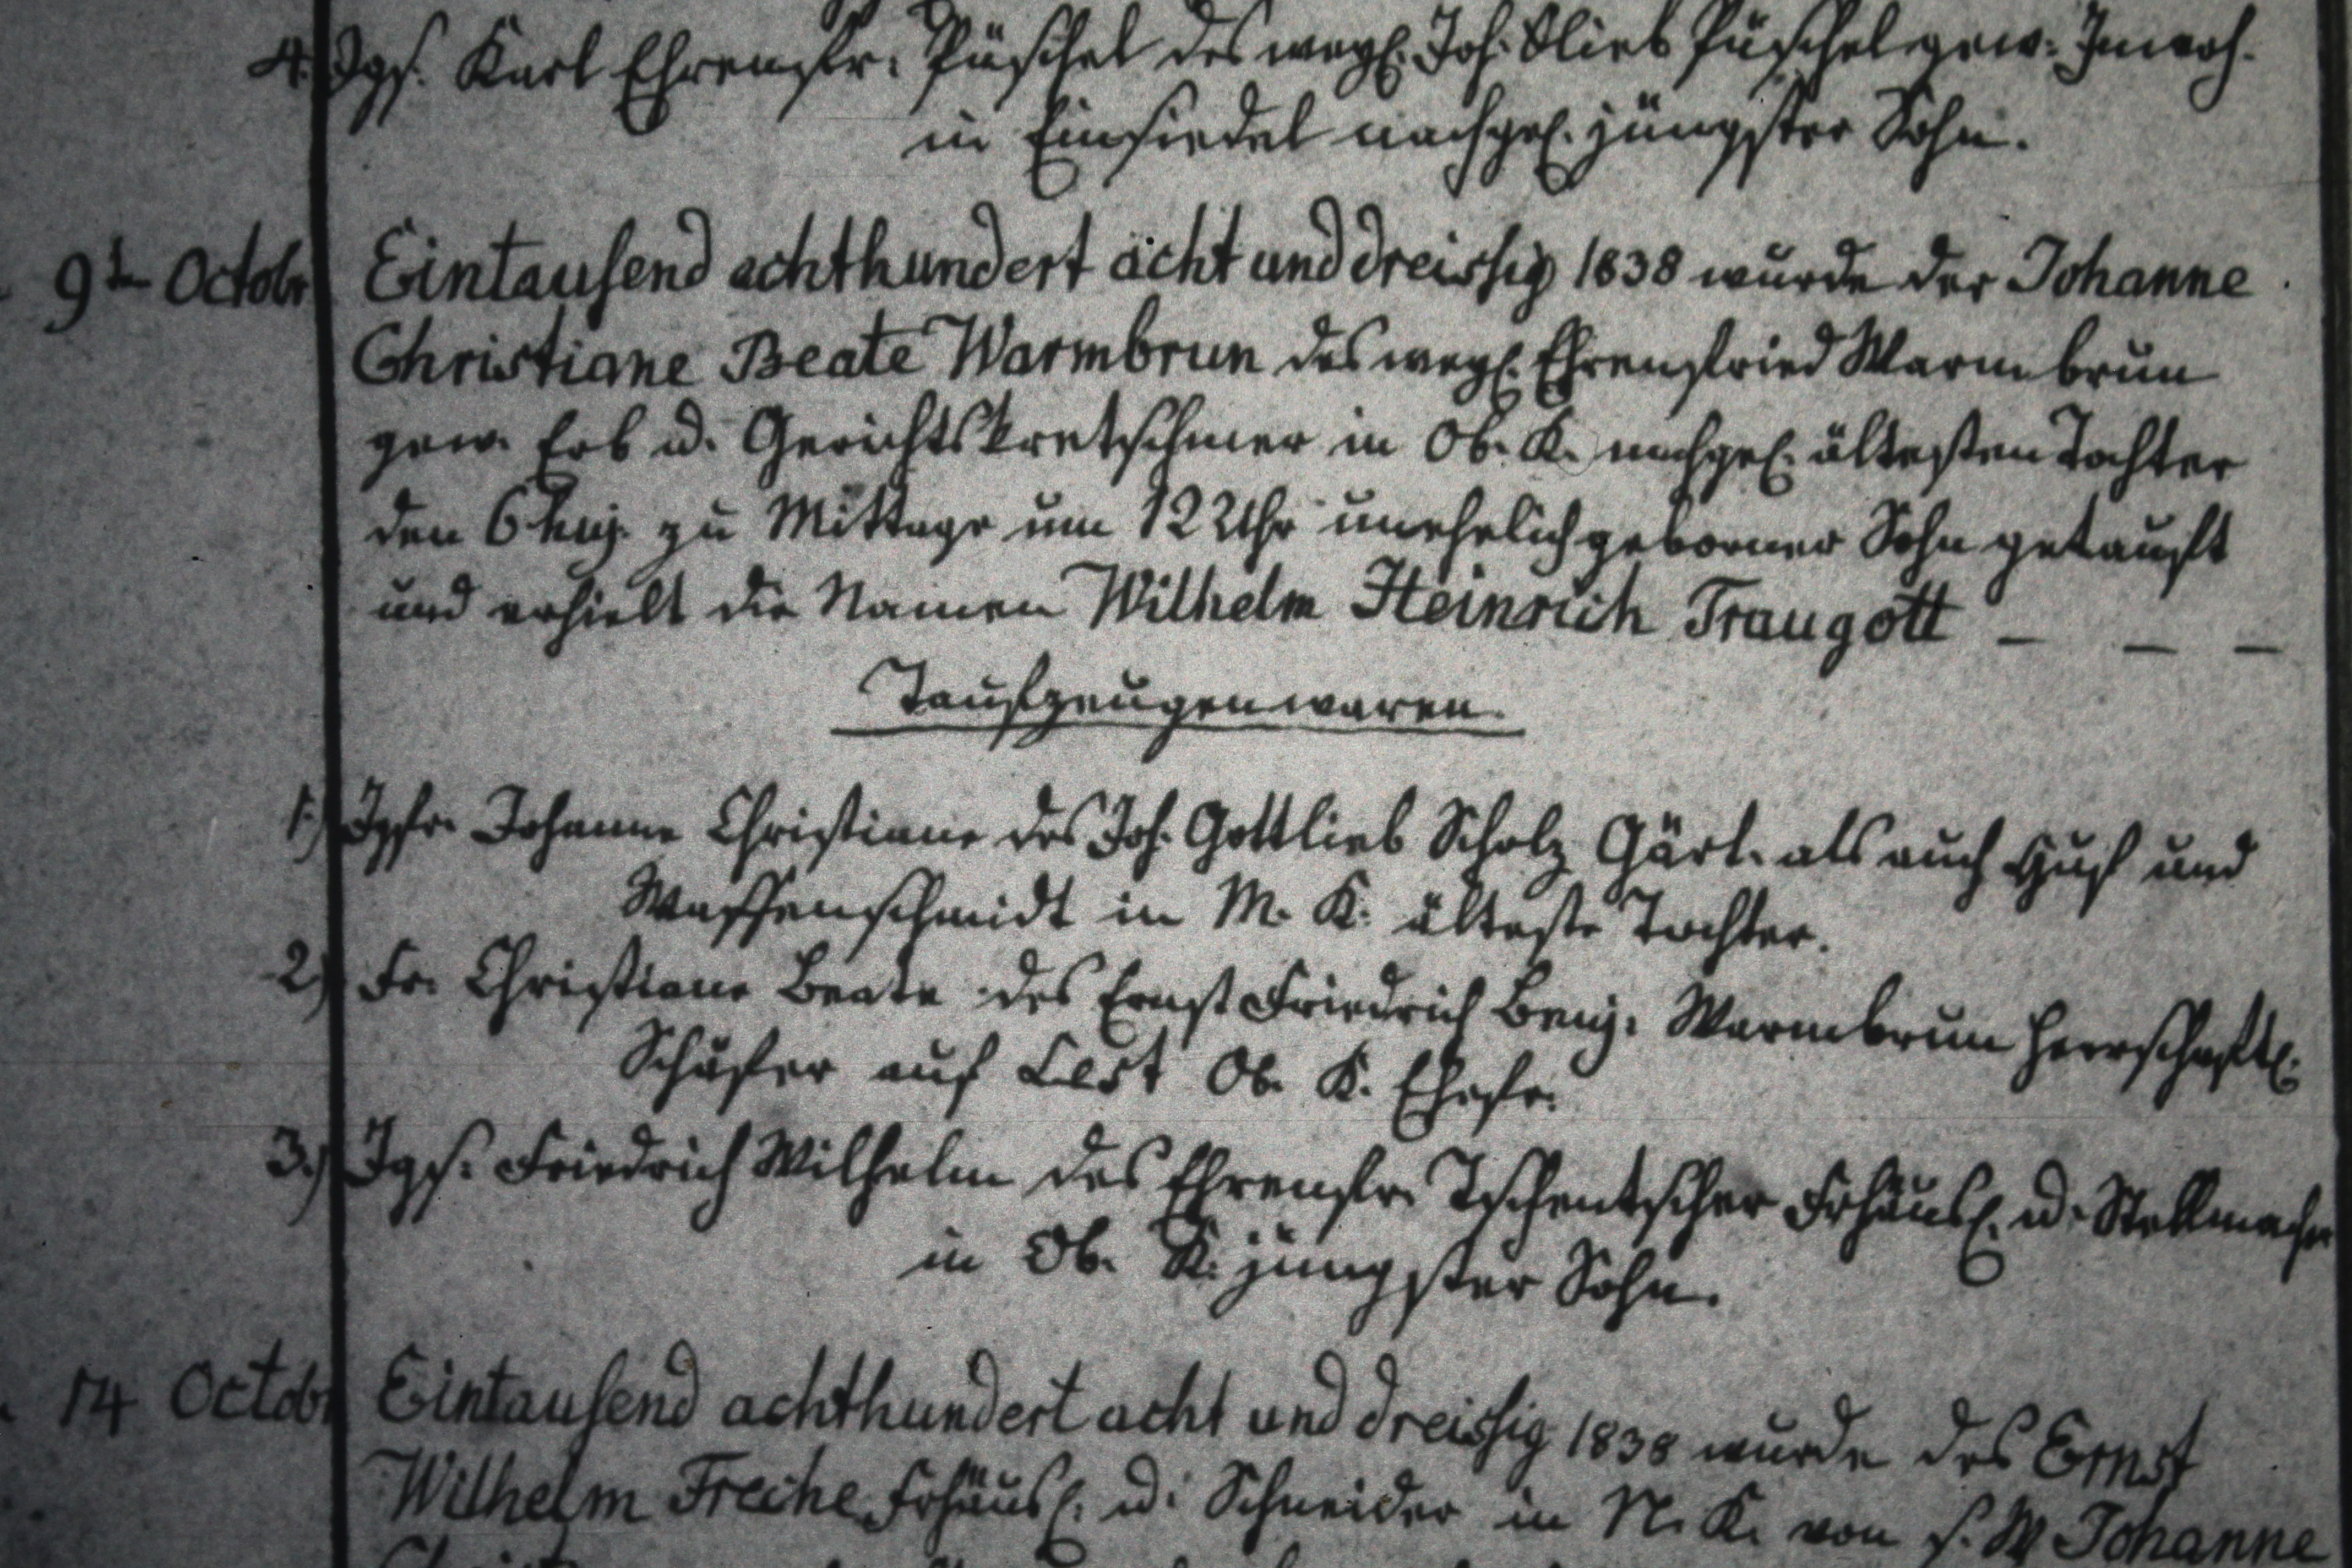 4. Jgs. Karl Ehrenfr. Püschel des wegl. Joh. Glieb Püschel gew. Inwoh.
in Einsiedel nachgel. jüngster Sohn.
9ten Octobr Eintausend achthundert acht und dreissig 1838 wurde der Johanne
Christiane Beate Warmbrun des wegl. Ehrenfried Warmbrun
gew. Erb u. Gerichtskretschmer in Ob. K. nachgel. ältesten Tochter
den 6 huj. zu Mittage um 12 Uhr unehelich geborner Sohn getauft
und erhielt die Namen Wilhelm Heinrich Traugott – – –
Taufzeugen waren.
1.) Jgfr. Johanne Christiane des Joh. Gottlieb Scholz Gärt. als auch Huf und
Waffenschmidt in M. K. älteste Tochter.
2.) Fr. Christiane Beate des Ernst Friedrich Benj. Warmbrun herrschaftl.
Schäfer auf Ob. K. Ehefr.
3.) Jgs. Friedrich Wilhelm des Ehrenfr. Tschentscher Frhäusl. u. Stellmacher
in Ob. K. jüngster Sohn.
14 Octobr Eintausend achthundert acht und dreissig 1838 wurde des Ernst
Wilhelm Freche Frhäusl. u. Schneider in N. K. von s. W Johanne